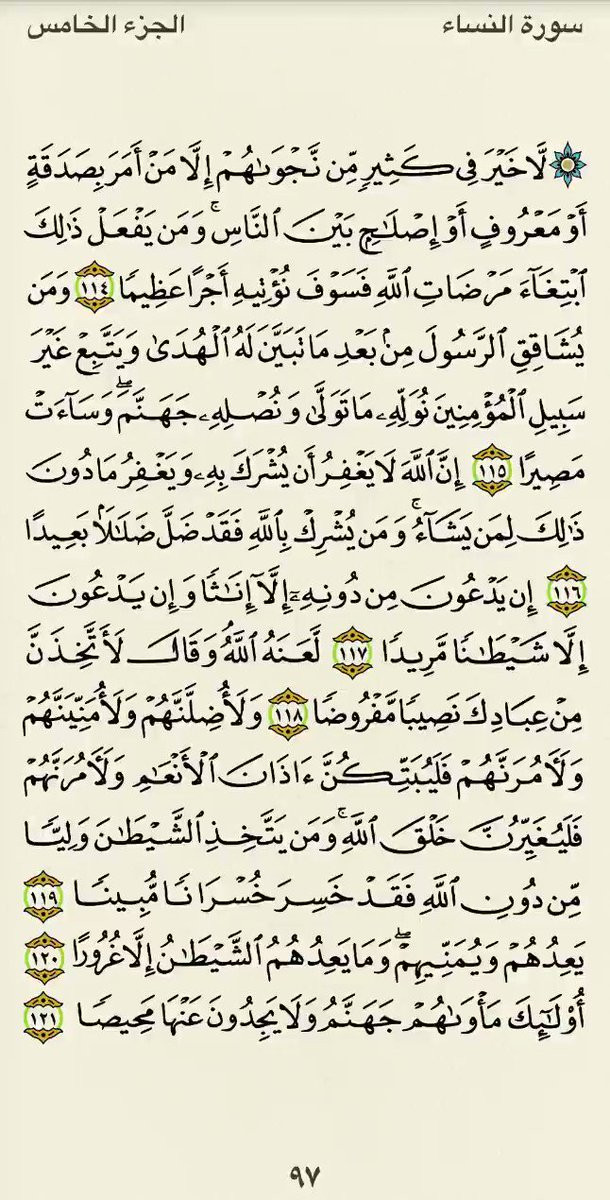 سورة النساء
الجزء الخامس
۞ لَّا خَيْرَ فِي كَثِيرٍ مِّن نَّجْوَىٰهُمْ إِلَّا مَنْ أَمَرَ بِصَدَقَةٍ
أَوْ مَعْرُوفٍ أَوْ إِصْلَٰحٍۭ بَيْنَ ٱلنَّاسِۚ وَمَن يَفْعَلْ ذَٰلِكَ
ٱبْتِغَآءَ مَرْضَاتِ ٱللَّهِ فَسَوْفَ نُؤْتِيهِ أَجْرًا عَظِيمًا ١١٤ وَمَن
يُشَاقِقِ ٱلرَّسُولَ مِنۢ بَعْدِ مَا تَبَيَّنَ لَهُ ٱلْهُدَىٰ وَيَتَّبِعْ غَيْرَ
سَبِيلِ ٱلْمُؤْمِنِينَ نُوَلِّهِۦ مَا تَوَلَّىٰ وَنُصْلِهِۦ جَهَنَّمَۖ وَسَآءَتْ
مَصِيرًا ١١٥ إِنَّ ٱللَّهَ لَا يَغْفِرُ أَن يُشْرَكَ بِهِۦ وَيَغْفِرُ مَا دُونَ
ذَٰلِكَ لِمَن يَشَآءُۚ وَمَن يُشْرِكْ بِٱللَّهِ فَقَدْ ضَلَّ ضَلَٰلًۢا بَعِيدًا
١١٦ إِن يَدْعُونَ مِن دُونِهِۦٓ إِلَّآ إِنَٰثًا وَإِن يَدْعُونَ
إِلَّا شَيْطَٰنًا مَّرِيدًا ١١٧ لَّعَنَهُ ٱللَّهُۘ وَقَالَ لَأَتَّخِذَنَّ
مِنْ عِبَادِكَ نَصِيبًا مَّفْرُوضًا ١١٨ وَلَأُضِلَّنَّهُمْ وَلَأُمَنِّيَنَّهُمْ
وَلَءَامُرَنَّهُمْ فَلَيُبَتِّكُنَّ ءَاذَانَ ٱلْأَنْعَٰمِ وَلَءَامُرَنَّهُمْ
فَلَيُغَيِّرُنَّ خَلْقَ ٱللَّهِۚ وَمَن يَتَّخِذِ ٱلشَّيْطَٰنَ وَلِيًّا
مِّن دُونِ ٱللَّهِ فَقَدْ خَسِرَ خُسْرَانًا مُّبِينًا ١١٩
يَعِدُهُمْ وَيُمَنِّيهِمْۖ وَمَا يَعِدُهُمُ ٱلشَّيْطَٰنُ إِلَّا غُرُورًا ١٢٠
أُو۟لَٰٓئِكَ مَأْوَىٰهُمْ جَهَنَّمُ وَلَا يَجِدُونَ عَنْهَا مَحِيصًا ١٢١
٩٧